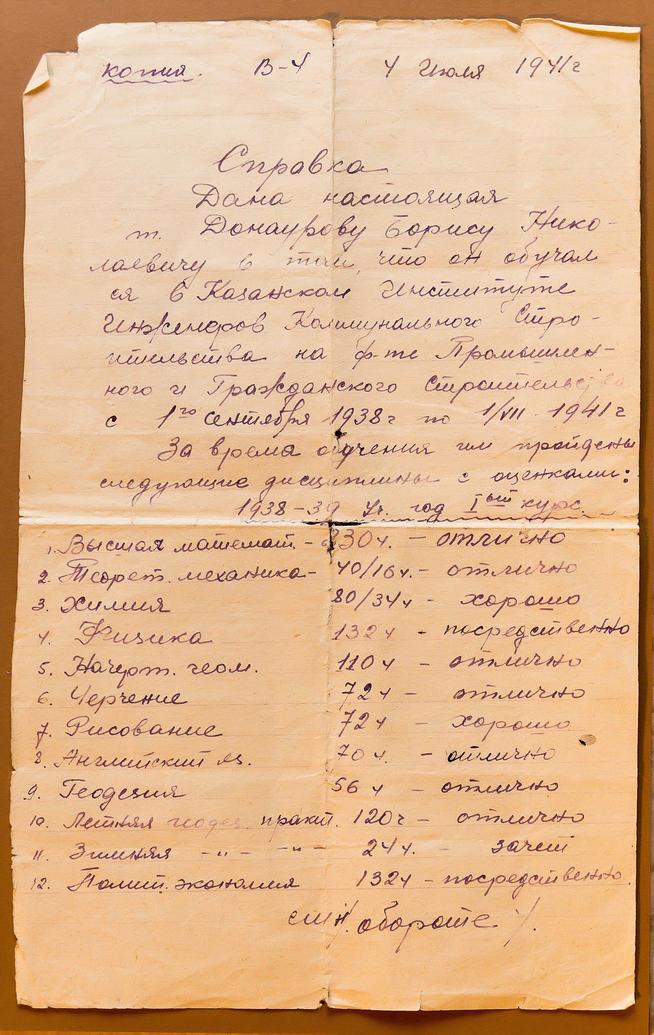 копия. В-4 4 Июля 1941г
Справка
Дана настоящая
т. Донаурову Борису Нико-
лаевичу в том, что он обучал
ся в Казанском Институте
Инженеров Коммунального Стро-
ительства на ф-те Промышлен-
ного и Гражданского Строительства
с 1го сентября 1938г по 1/VII 1941г
За время обучения им пройдены
следующие дисциплины с оценками:
1938-39 уч. год Iый курс.
1. Высшая математ. - 330ч. - отлично
2. Теорет. механика - 40/16ч. - отлично
3. Химия 80/34ч - хорошо
4. Физика 132ч - посредственно
5. Начерт. геом. 110ч - отлично
6. Черчение 72ч - отлично
7. Рисование 72ч - хорошо
8. Английский яз. 70ч. - отлично
9. Геодезия 56ч - отлично
10. Летняя геодез. практ. 120ч - отлично
11. Зимняя -"- -"- 24ч. - зачет
12. Полит. экономия 132ч - посредственно.
см н/обороте ./.